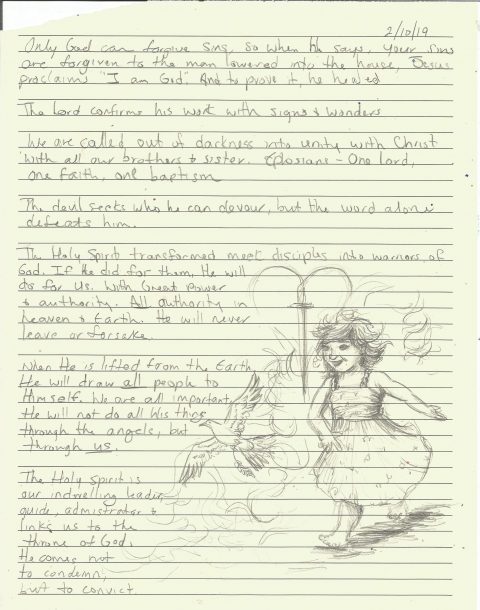 2/10/19
Only God can forgive sins, so when he says, your sins
are forgiven to the man lowered into the house, Jesus
proclaims "I am God". And to prove it, he healed
The Lord confirms his work with signs & wonders
We are called out of darkness into unity with Christ
with all our brothers & sister. Ephosians - One lord,
one faith, one baptism
The devil seeks who he can devour, but the word alone
defeats him.
The Holy Spirit transformed meek disciples into warriors of
God. If he did for them, He will
do for us. With Great Power
& authority. All authority in
heaven & Earth. He will never
leave or forsake.
When He is lifted from the Earth,
He will draw all people to
Himself. We are all important,
He will not do all His thing
through the angels, but
through us.
The Holy Spirit is
our indwelling leader,
guide, admistrator &
links us to the
throne of God.
He comes not
to condemn,
but to convict.